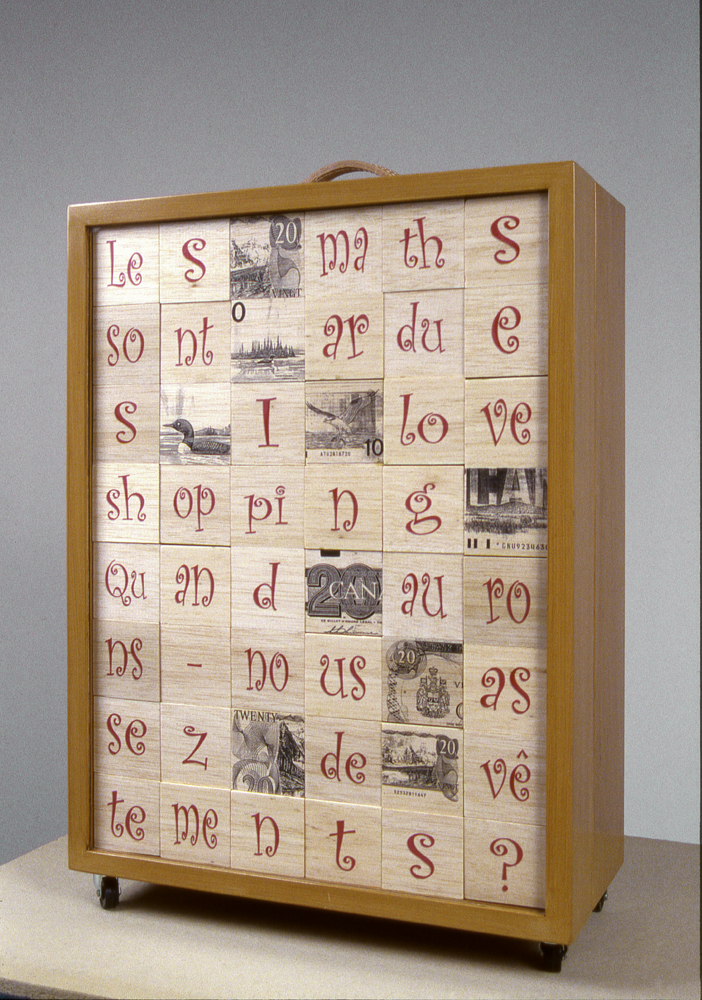 Le s 20 VINGT ma th s
so nt 0 ar du e
s I 10 lo ve
sh op pi n g
Qu an d 20 CAN au ro
ns - no us 20 as
se z TWENTY 20 de 20 vê
te me n t s ?